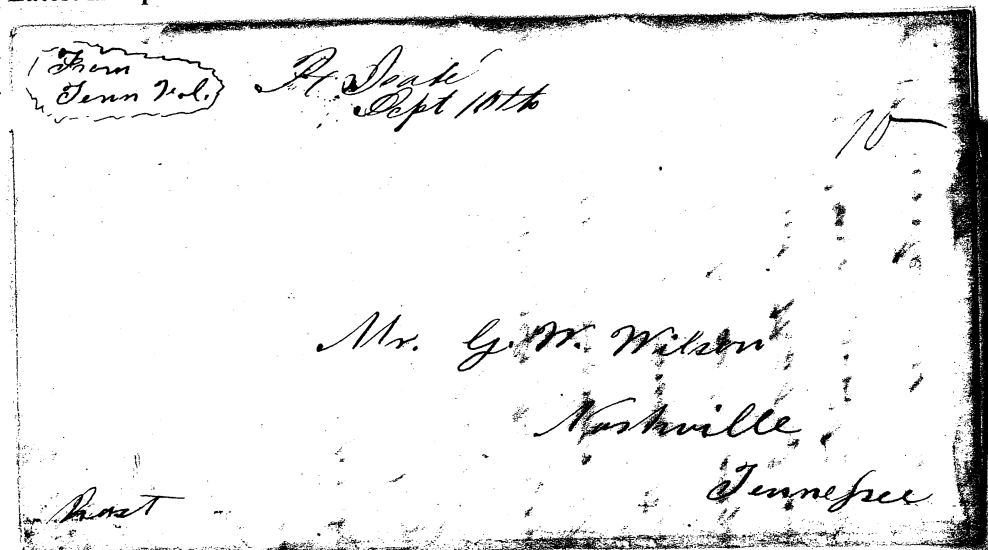 From
Tenn Vol.
Pt. Isabe
Sept 10th
10
Mr. G. W. Wilson
Nashville,
Tennessee